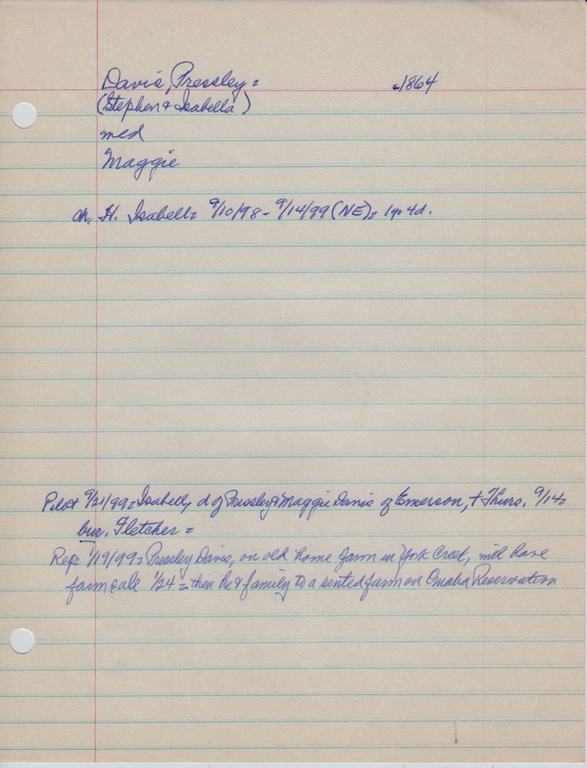 Davis, Pressley = c1864
(Stephen & Isabella)
med
Maggie
ch. H. Isabell = 9/10/98 - 9/14/99 (NE) = 1yr 4d.
Pilot 9/21/99 = Isabell, d of Pressley & Maggie Davis of Emerson, + Thurs. 9/14 =
bur. Fletcher =
Rep: 1/19/99 = Pressley Davis, on old home farm in York Creek, will have
farm sale 1/24 = then he & family to a rented farm on Omaha Reservation